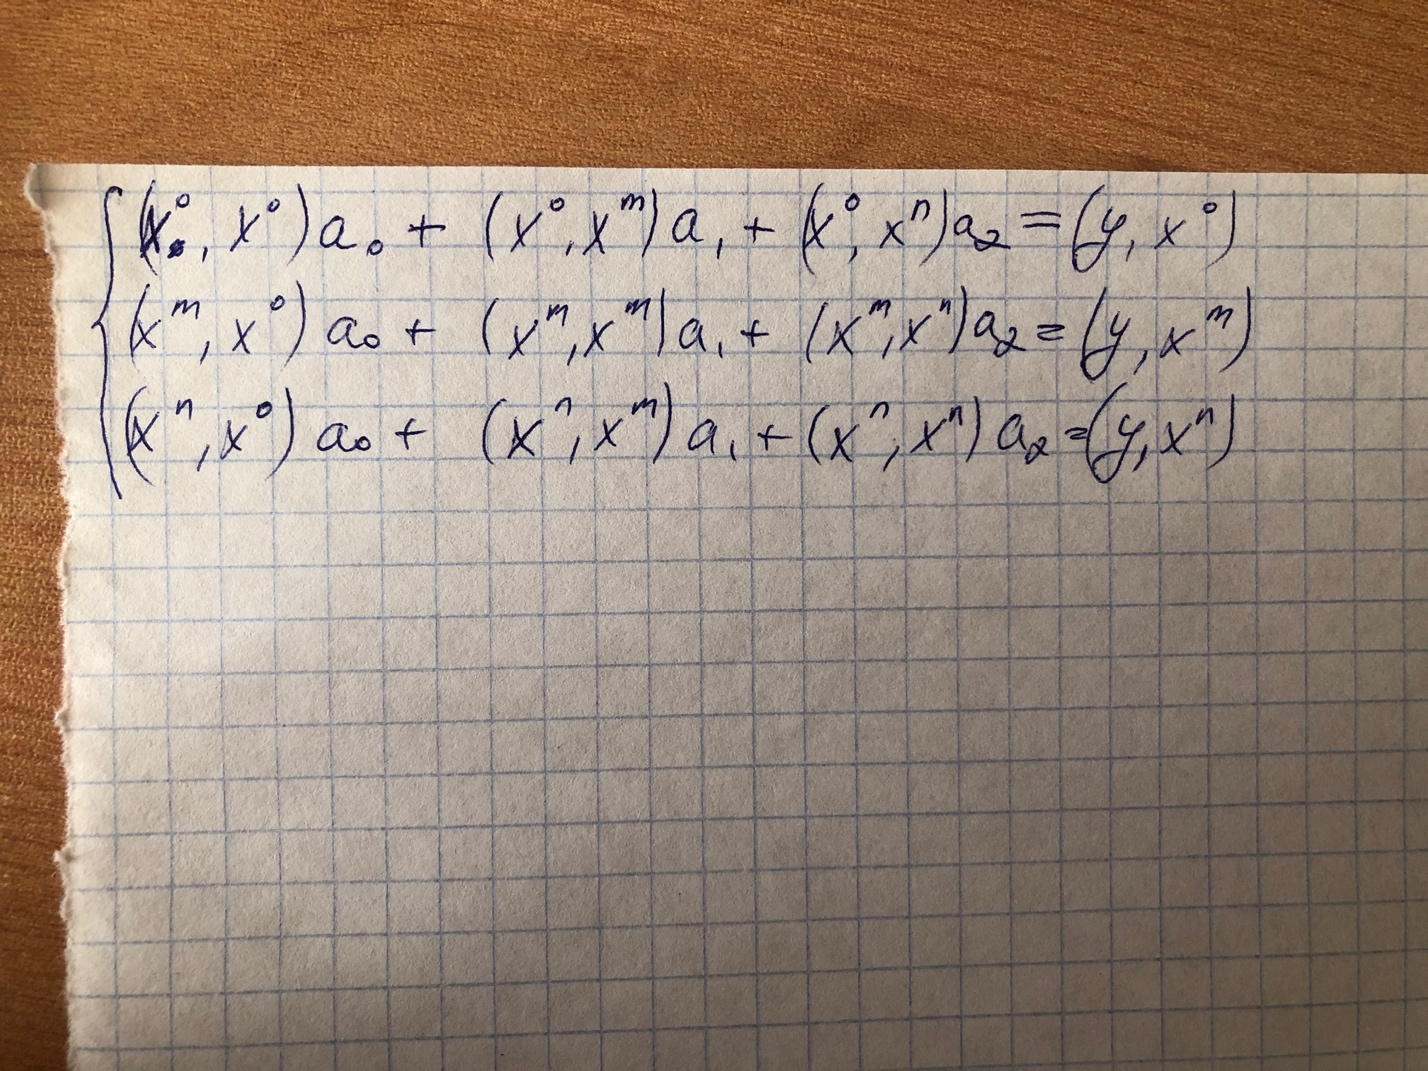 (x⁰, x⁰)a₀ + (x⁰, xᵐ)a₁ + (x⁰, xⁿ)a₂ = (y, x⁰)
(xᵐ, x⁰)a₀ + (xᵐ, xᵐ)a₁ + (xᵐ, xⁿ)a₂ = (y, xᵐ)
(xⁿ, x⁰)a₀ + (xⁿ, xᵐ)a₁ + (xⁿ, xⁿ)a₂ = (y, xⁿ)